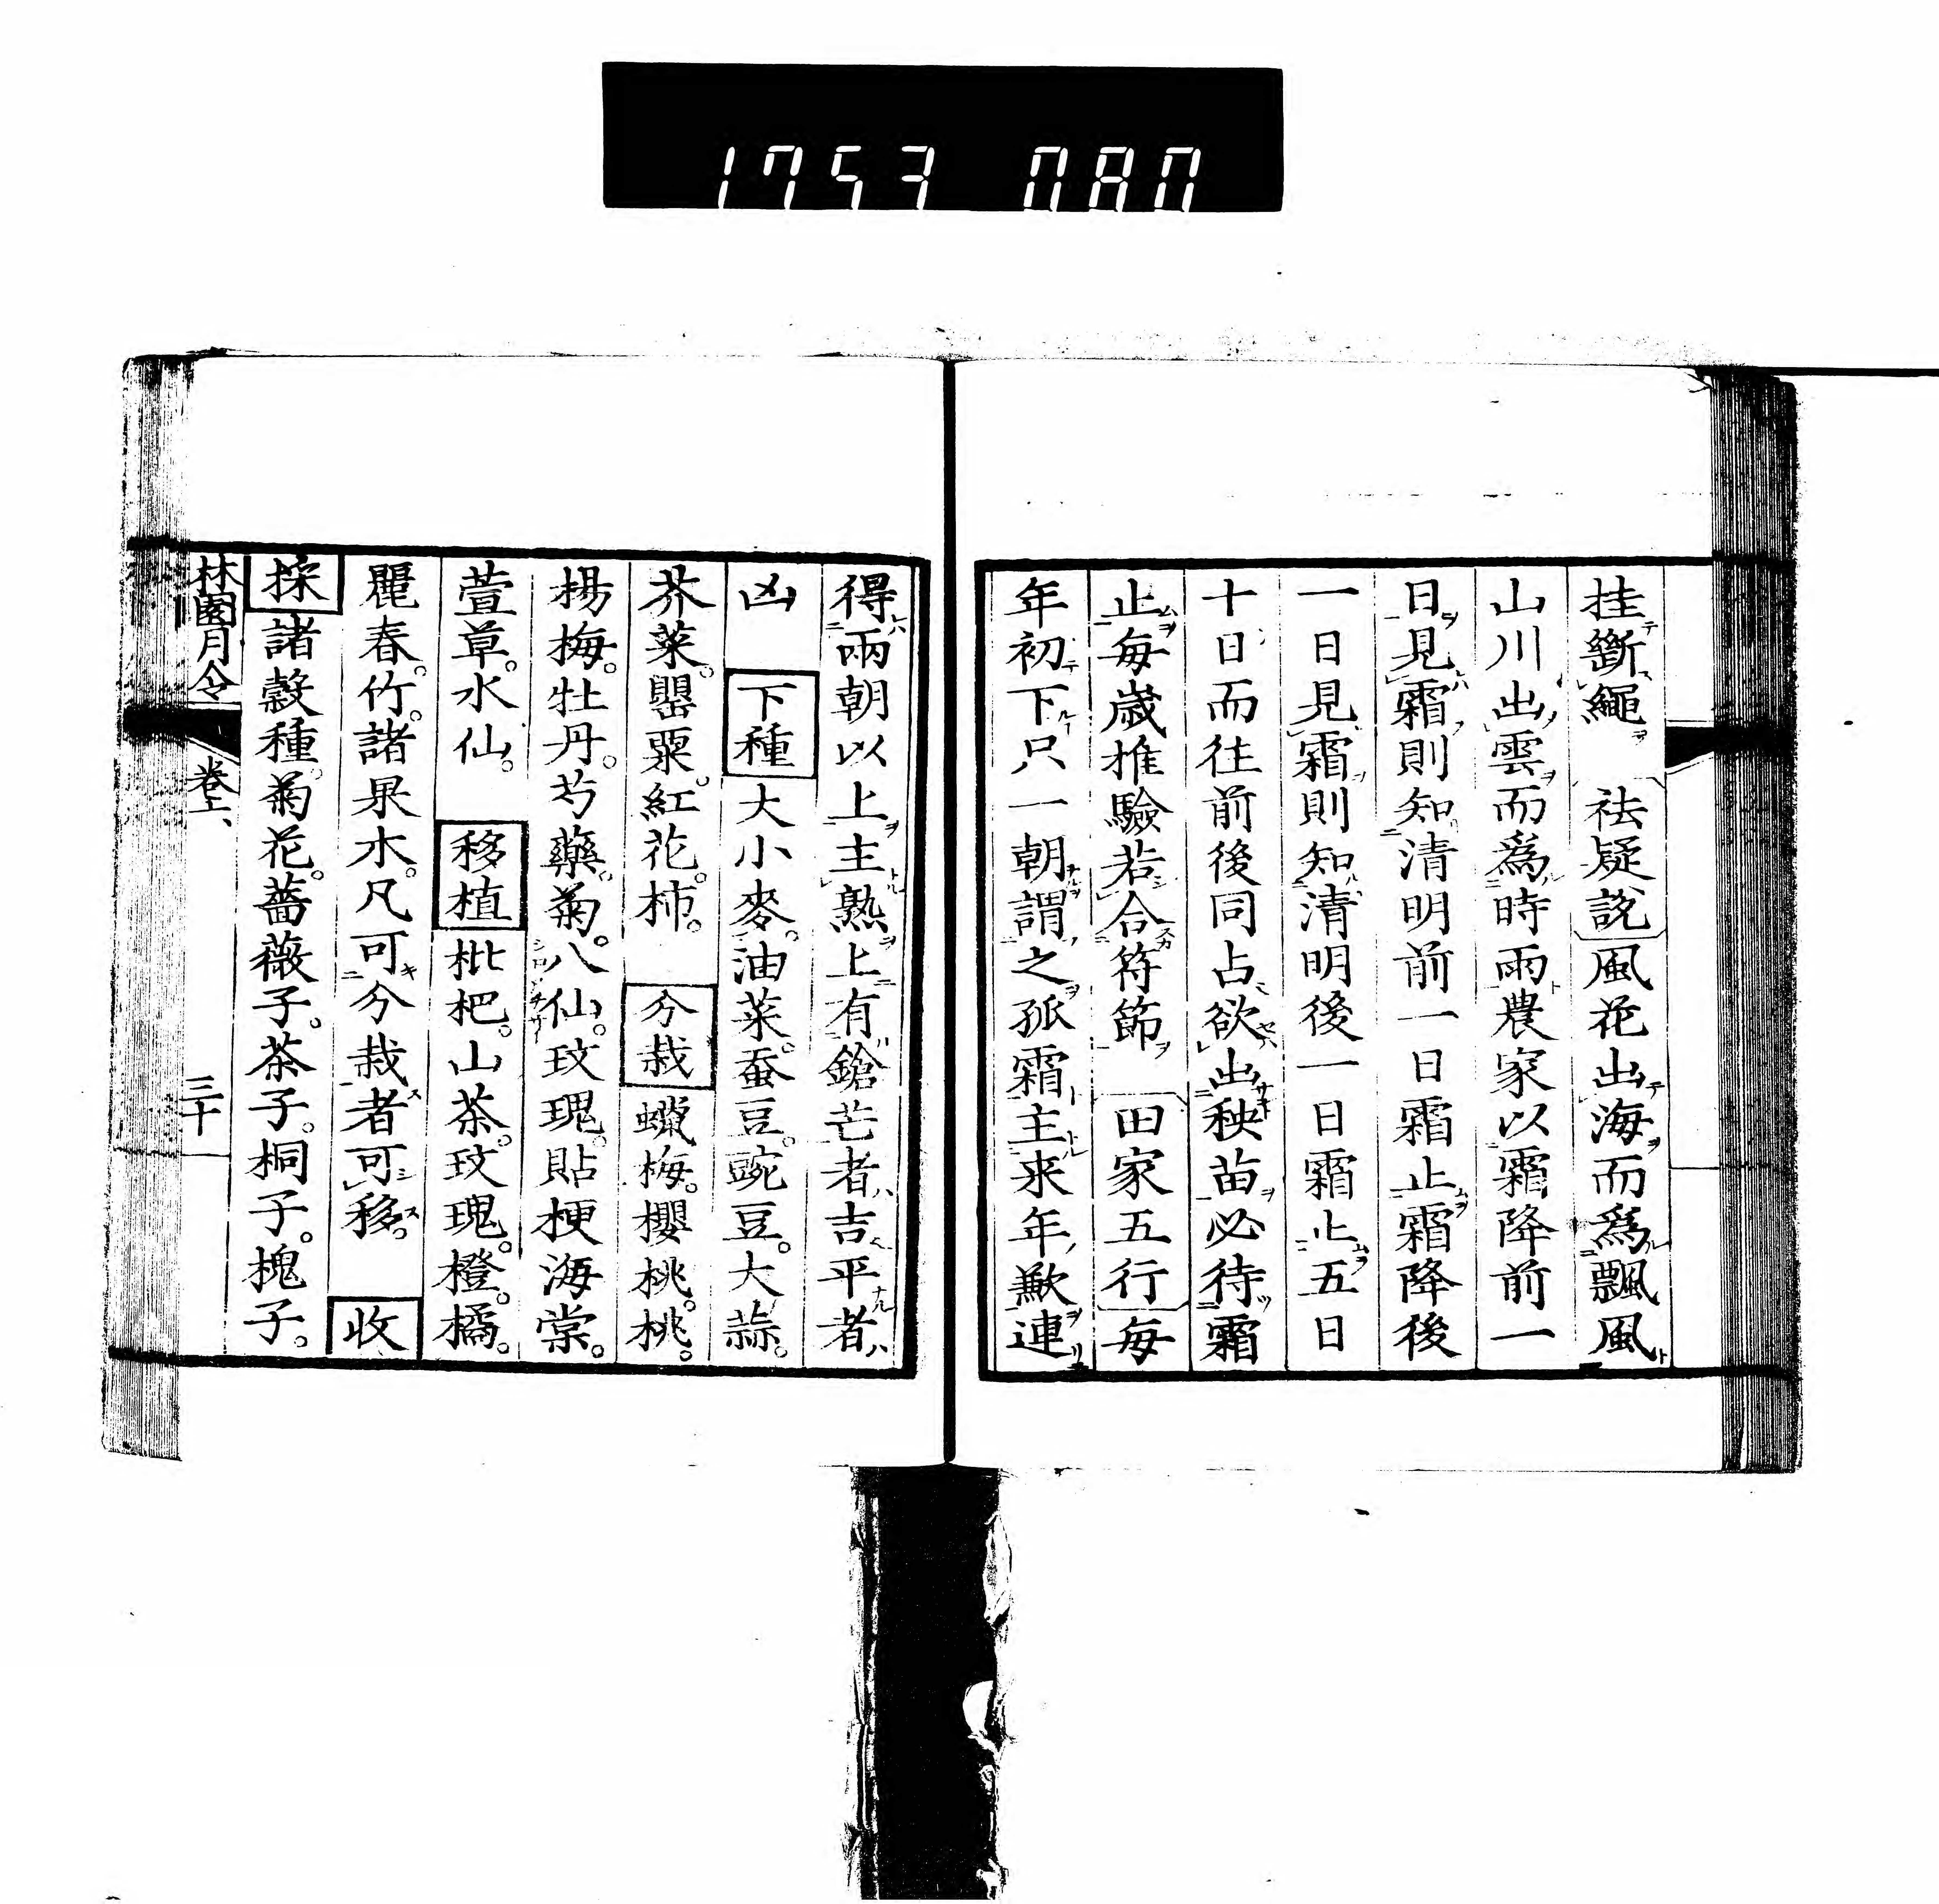 1753 080
挂斷繩　祛疑說風花出海而爲飄風
山川出雲而爲時雨農家以霜降前一
日見霜則知清明前一日霜止霜降後
一日見霜則知清明後一日霜止五日
十日而往前後同占欲出秧苗必待霜
止每歲推驗若合符節　田家五行每
年初下只一朝謂之孤霜主来年歉連
得兩朝以上主熟上有鎗芒者吉平者
凶　下種大小麥。油菜。蚕豆。豌豆。大蒜。
芥菜。罌粟。紅花。柿。　分栽蠟梅。櫻桃。桃。
楊梅。牡丹。芍藥。菊。八仙。玫瑰。貼梗海棠。
萱草。水仙。　移植枇杷。山茶。玫瑰。橙。橘。
麗春。竹。諸果木。凡可分栽者可移。　收
採諸穀種。菊花。薔薇子。茶子。桐子。槐子。
林園月令　卷上　三十